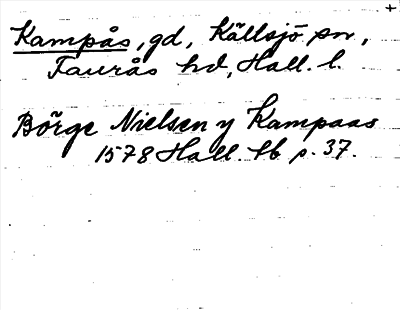 Kampås, gd, Källsjö sn,
Faurås hd, Hall. l.
Börge Nielsen y Kampaas
1578 Hall. lb s. 37.